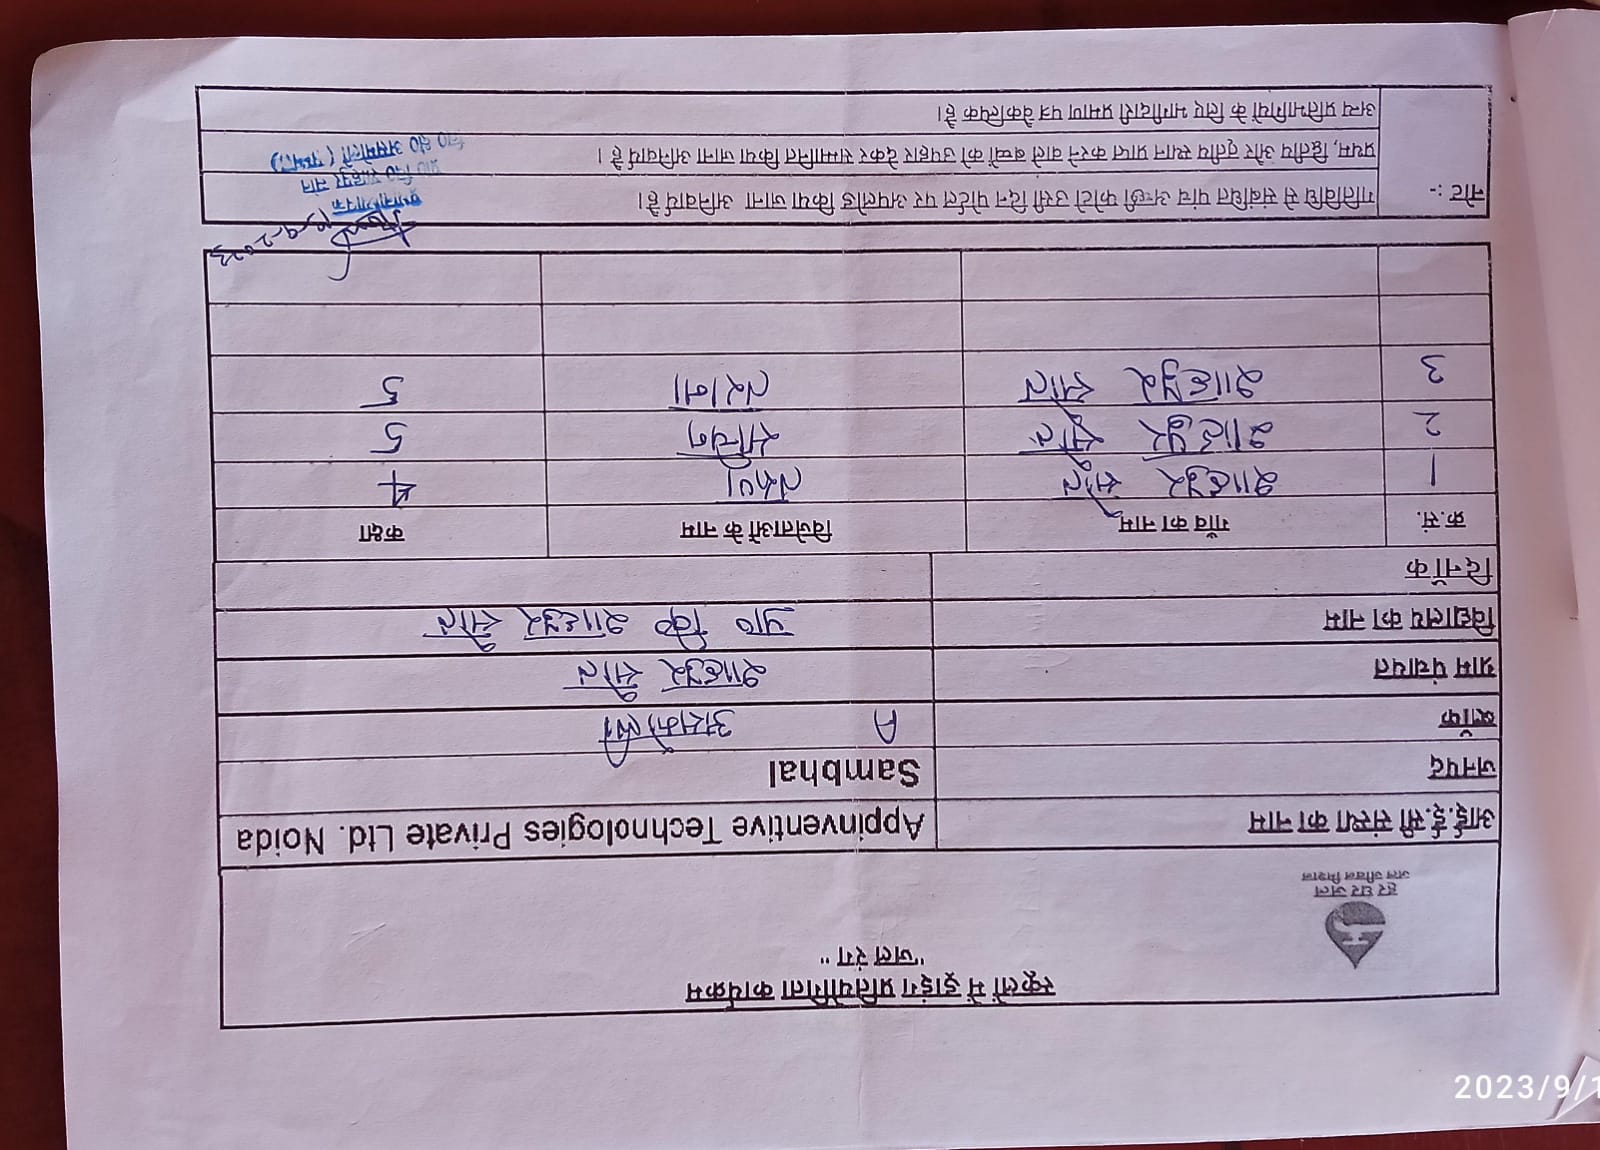 स्कूलों में ड्राइंग प्रतियोगिता कार्यक्रम
"जल रंग"
हर घर जल
जल जीवन मिशन
आई.ई.सी संस्था का नाम Appinventive Technologies Private Ltd. Noida
जनपद Sambhal
ब्लॉक A असमोली
ग्राम पंचायत शाहपुर सोत
विद्यालय का नाम प्रा० वि० शाहपुर सोत
दिनाँक
क्र.सं. गाँव का नाम विजेताओं के नाम कक्षा
1 शाहपुर सोत तरुण 4
2 शाहपुर सोत सचिन 5
3 शाहपुर सोत 5
नोट :- गतिविधि से संबंधित पांच अच्छी फोटो उसी दिन पोर्टल पर अपलोड किया जाना अनिवार्य है।
प्रथम, द्वितीय और तृतीय स्थान प्राप्त करने वाले बच्चों को उपहार देकर सम्मानित किया जाना अनिवार्य है।
अन्य प्रतिभागियों के लिए भागीदारी प्रमाण पत्र वैकल्पिक है।
-9-2023
प्रधानाध्यापक
प्रा० वि० शाहपुर सोत
वि० क्षे० असमोली (सम्भल)
2023/9/1